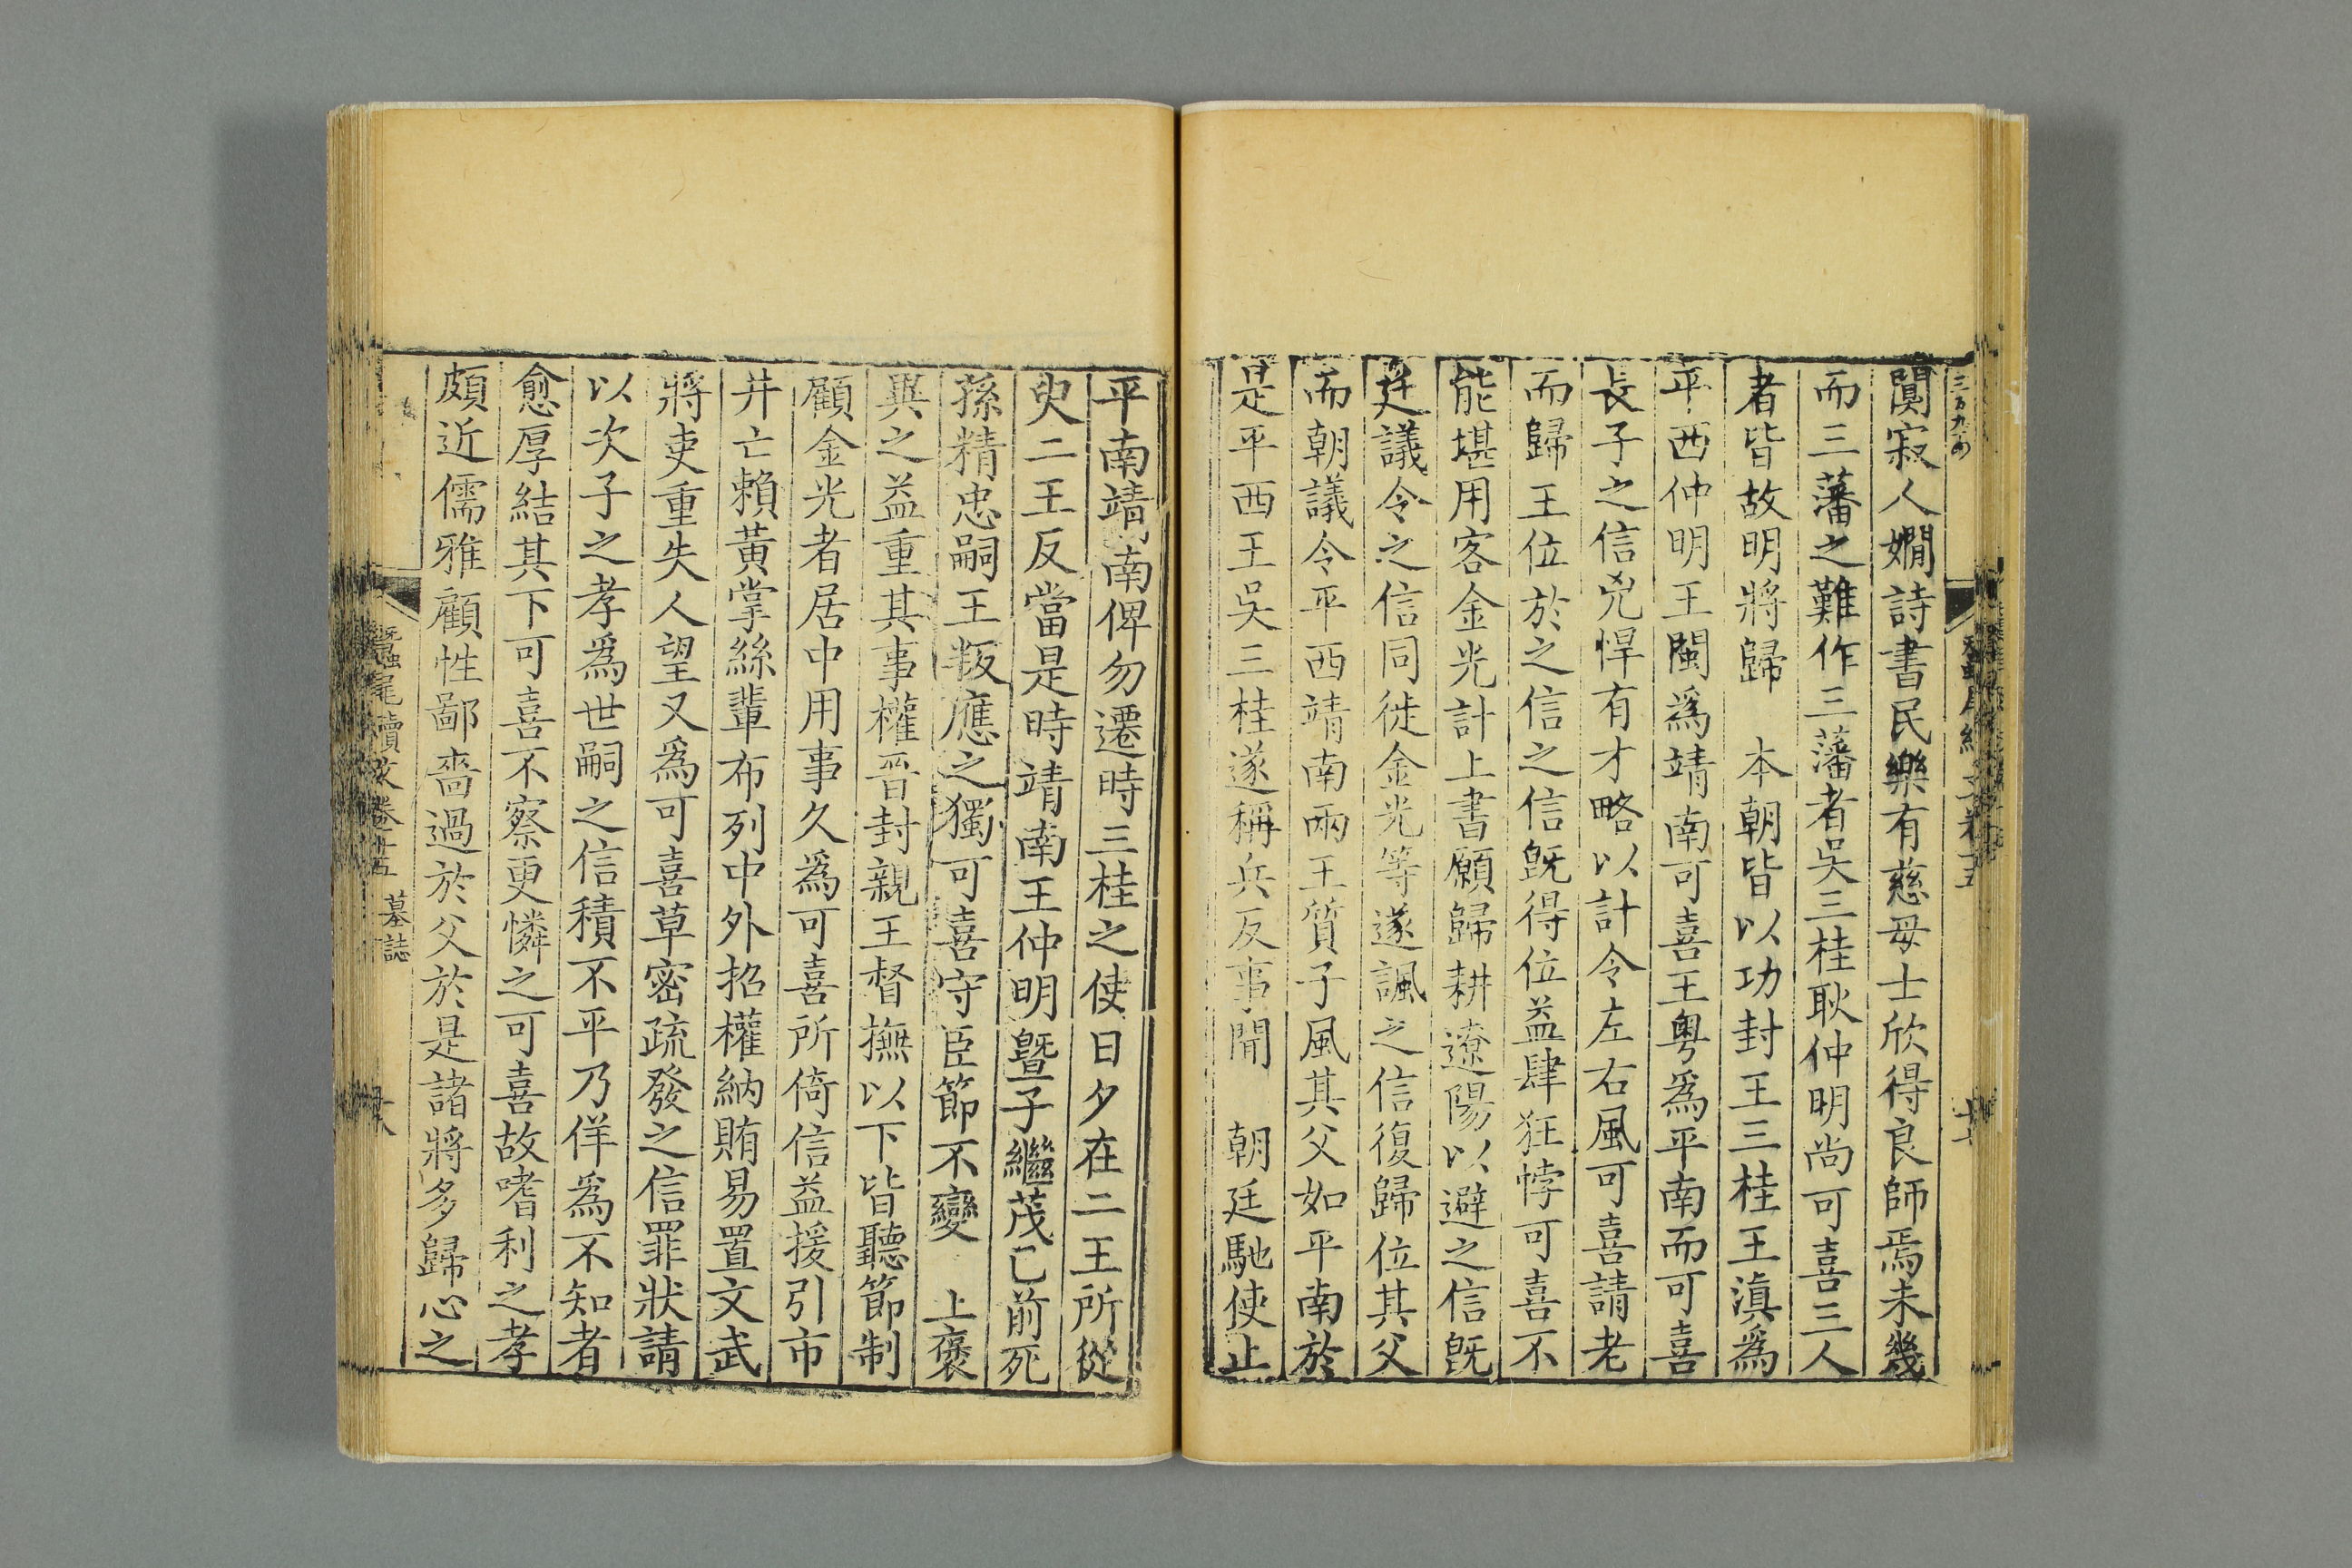 闃寂人嫺詩書民樂有慈母士欣得良師焉未幾
而三藩之難作三藩者吳三桂耿仲明尚可喜三人
者皆故明將歸　本朝皆以功封王三桂王滇爲
平西仲明王閩爲靖南可喜王粤爲平南而可喜
長子之信兇悍有才略以計令左右風可喜請老
而歸王位於之信之信旣得位益肆狂悖可喜不
能堪用客金光計上書願歸耕遼陽以避之信旣
廷議令之信同徙金光等遂諷之信復歸位其父
而朝議令平西靖南兩王質子風其父如平南於
是平西王吳三桂遂稱兵反事聞　朝廷馳使止
平南靖南俾勿遷時三桂之使日夕在二王所從
臾二王反當是時靖南王仲明曁子繼茂已前死
孫精忠嗣王叛應之獨可喜守臣節不變　上褒
異之益重其事權晉封親王督撫以下皆聽節制
顧金光者居中用事久爲可喜所倚信益援引市
井亡賴黃掌絲輩布列中外招權納賄易置文武
將吏重失人望又爲可喜草密疏發之信罪狀請
以次子之孝爲世嗣之信積不平乃佯爲不知者
愈厚結其下可喜不察更憐之可喜故嗜利之孝
頗近儒雅顧性鄙嗇過於父於是諸將多歸心之
蠶尾續文卷十五　墓誌